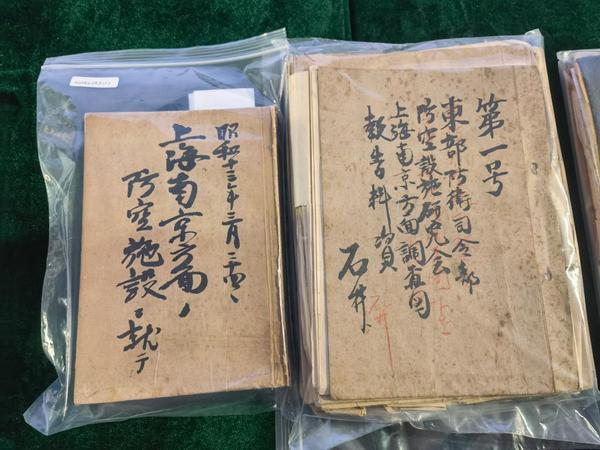 昭和十三年三月二十四日
上海南京方面ノ
防空施設ニ就テ
第一号
東部防衛司令部
防空設施研究会
上海南京方面調査団
報告資料
石井